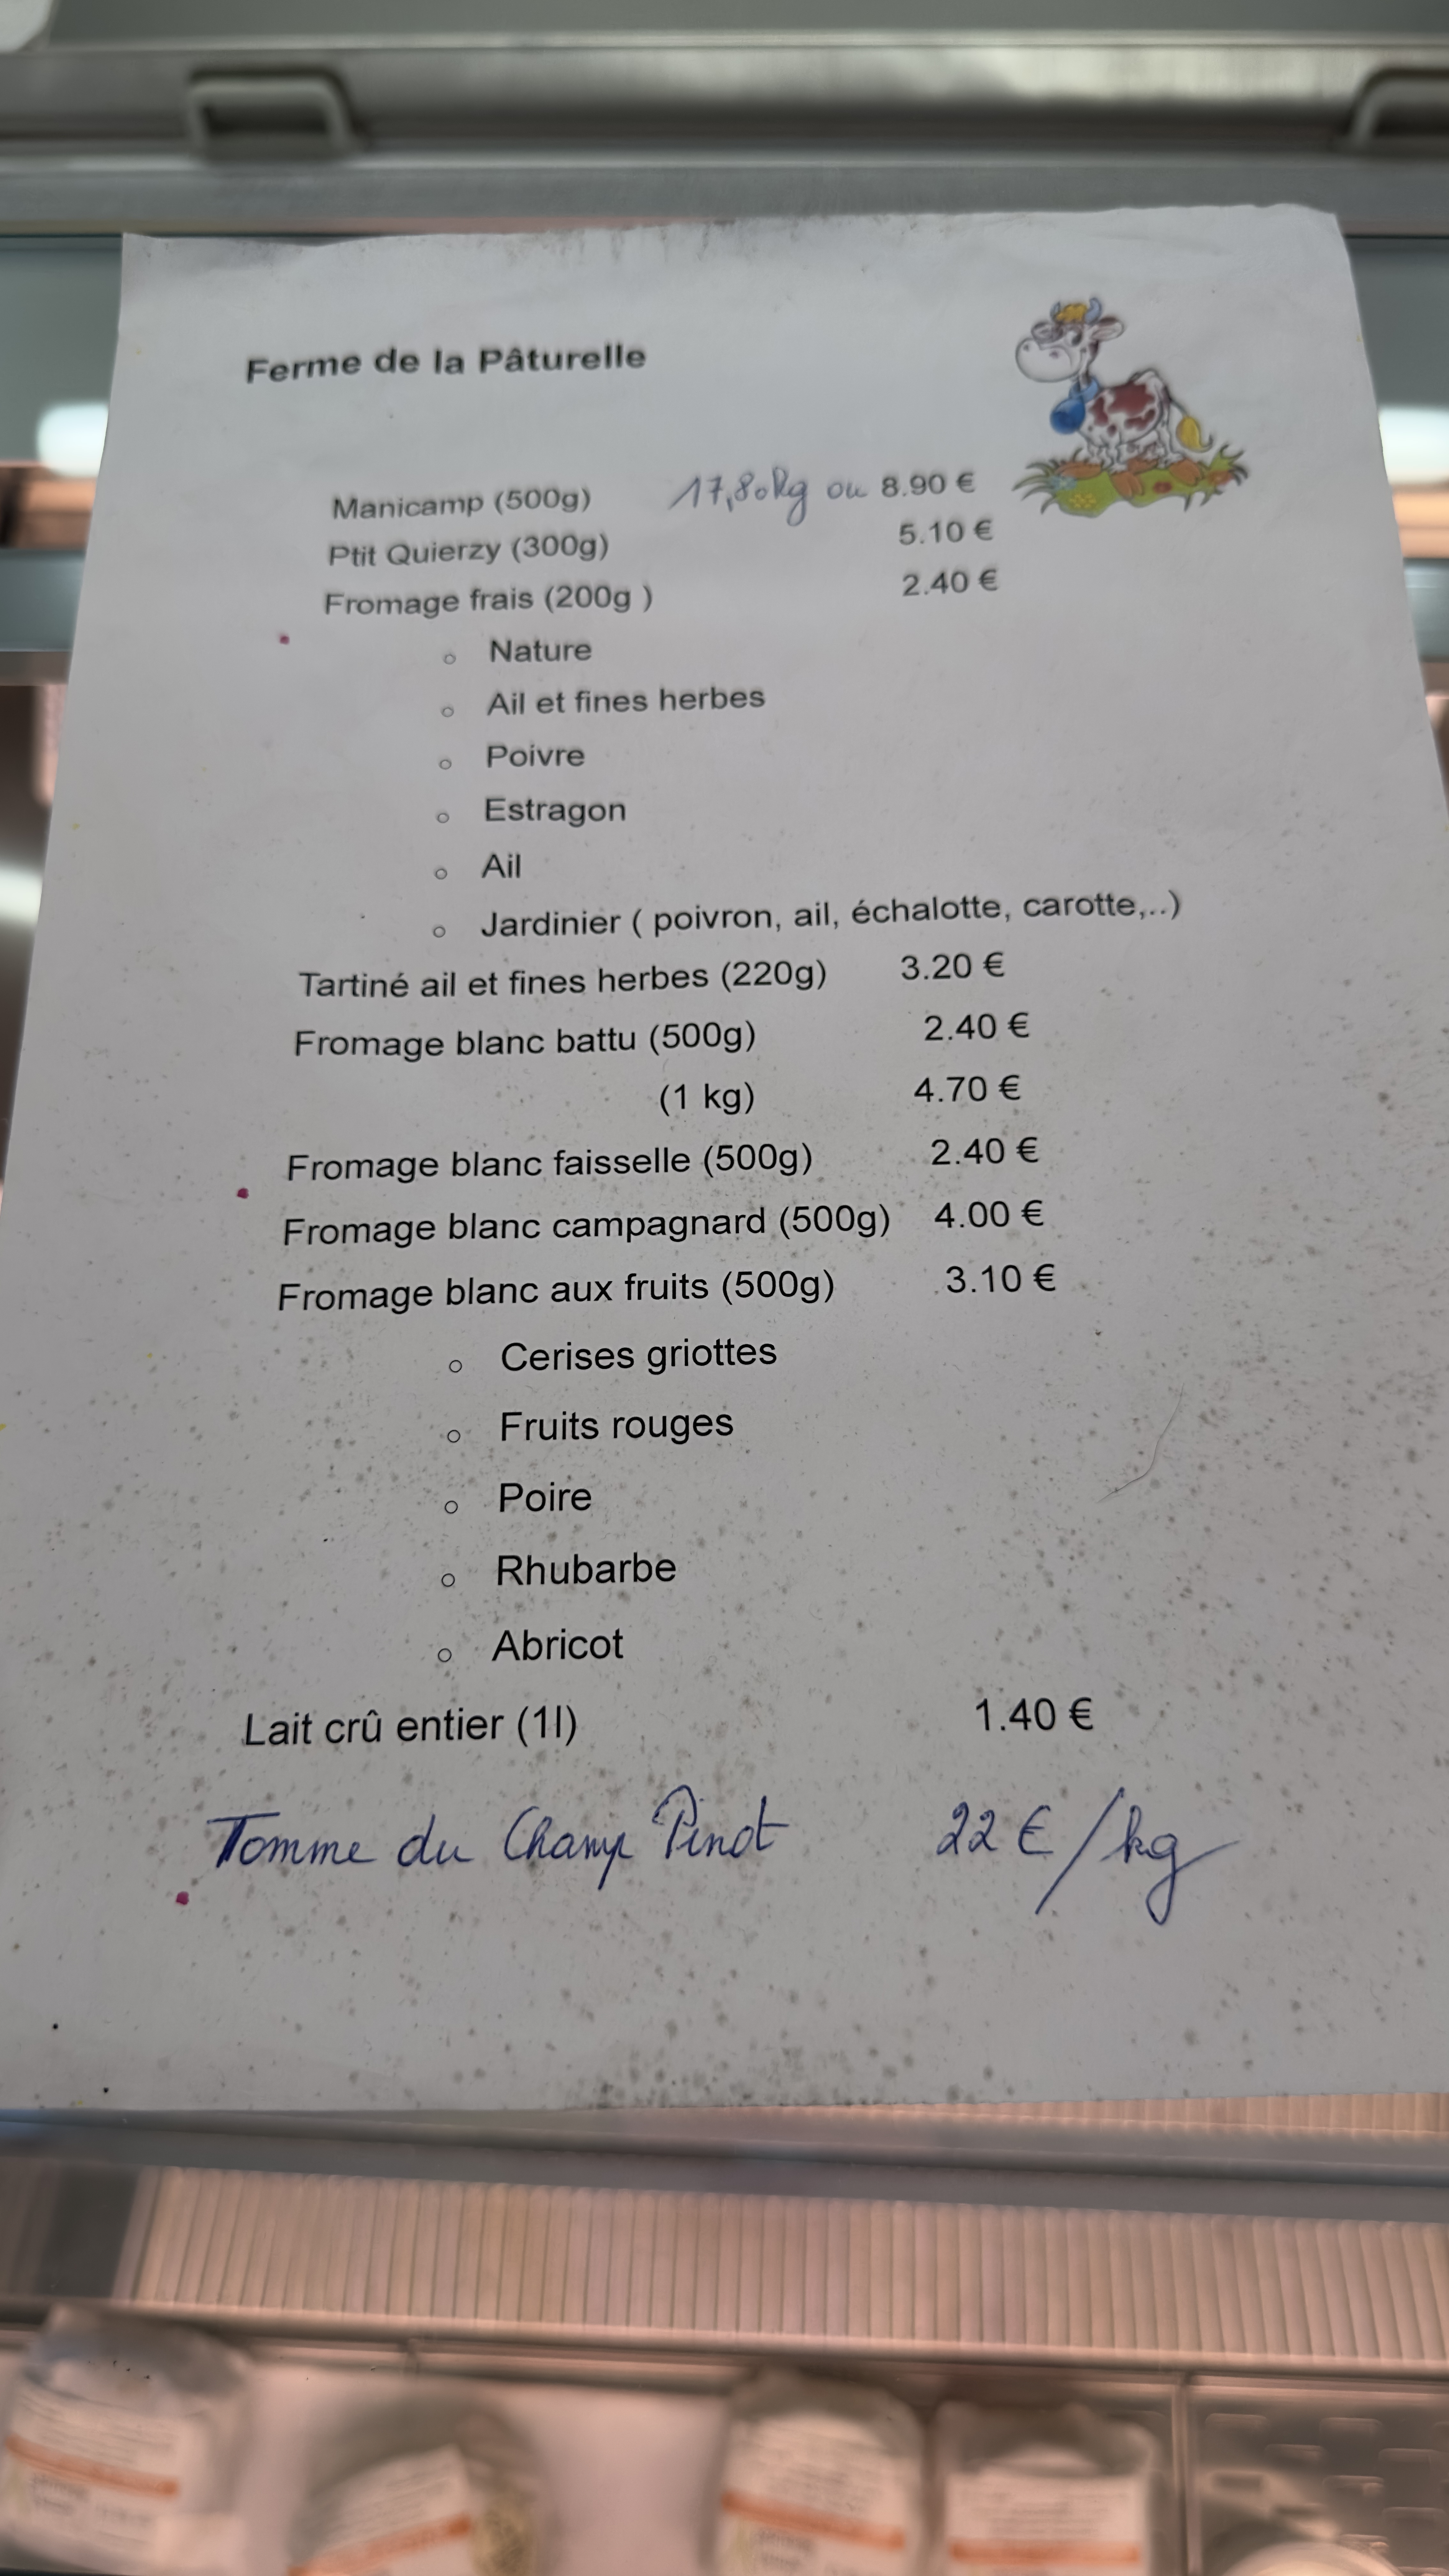 Ferme de la Pâturelle
Manicamp (500g) 17,80 kg ou 8.90 €
Ptit Quierzy (300g) 5.10 €
Fromage frais (200g ) 2.40 €
○ Nature
○ Ail et fines herbes
○ Poivre
○ Estragon
○ Ail
○ Jardinier ( poivron, ail, échalotte, carotte,..)
Tartiné ail et fines herbes (220g) 3.20 €
Fromage blanc battu (500g) 2.40 €
(1 kg) 4.70 €
Fromage blanc faisselle (500g) 2.40 €
Fromage blanc campagnard (500g) 4.00 €
Fromage blanc aux fruits (500g) 3.10 €
○ Cerises griottes
○ Fruits rouges
○ Poire
○ Rhubarbe
○ Abricot
Lait crû entier (1l) 1.40 €
Tomme du Champ Pinot 22 €/kg